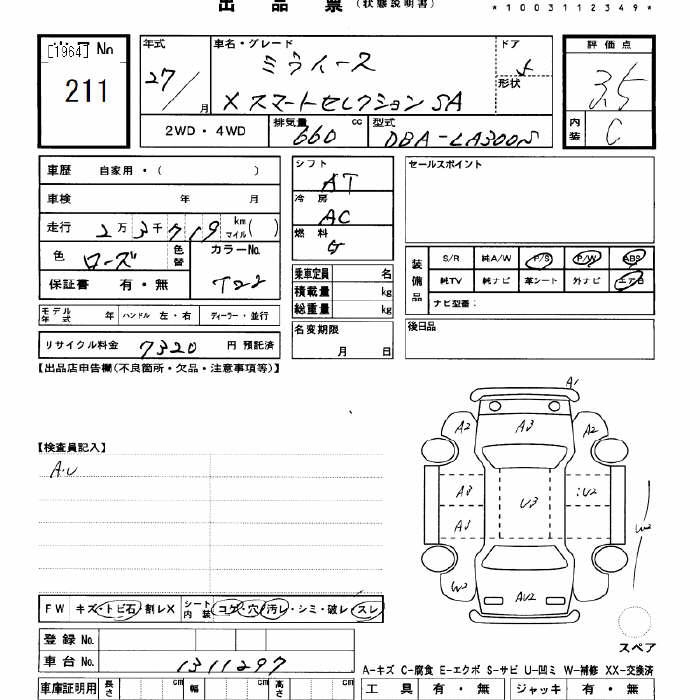 出品票 (状態説明書) *1003112349*
[1964] No
211
年式 27/ 月
車名・グレード ミライース
X スマートセレクション SA
ドア 5
形状
評価点 3.5
内装 C
2WD・4WD 排気量 660 cc 型式 DBA-LA300S
車歴 自家用・( )
車検 年 月
走行 2万3千719 km マイル( )
色 ローズ 色替 カラーNo. T22
保証書 有・無
シフト AT
冷房 AC
燃料 G
乗車定員 名
積載量 kg
総重量 kg
名変期限 月 日
セールスポイント
装備品 S/R 純A/W P/S P/W ABS
純TV 純ナビ 革シート 外ナビ エアB
ナビ型番:
後日品
モデル年式 年 ハンドル 左・右 ディーラー・並行
リサイクル料金 7320 円 預託済
【出品店申告欄(不良箇所・欠品・注意事項等)】
【検査員記入】
A.U
A1
A2 A3 A2
A3 U3 U2
A3
W2 AU2 W2
FW キズ・トビ石・割レX シート内装 コゲ・穴・汚レ・シミ・破レ・スレ
スペア
登録No.
車台No. 1311297
A-キズ C-腐食 E-エクボ S-サビ U-凹ミ W-補修 XX-交換済
車庫証明用 長さ cm 幅 cm 高さ cm
工具 有・無 ジャッキ 有・無